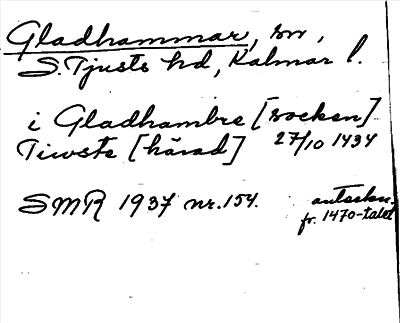 Gladhammar, sn,
S. Tjusts hd, Kalmar l.
i Gladhambre [socken]
Tiwste [härad] 27/10 1434
SMR 1937 nr. 154.
avskr.
fr. 1470-talet